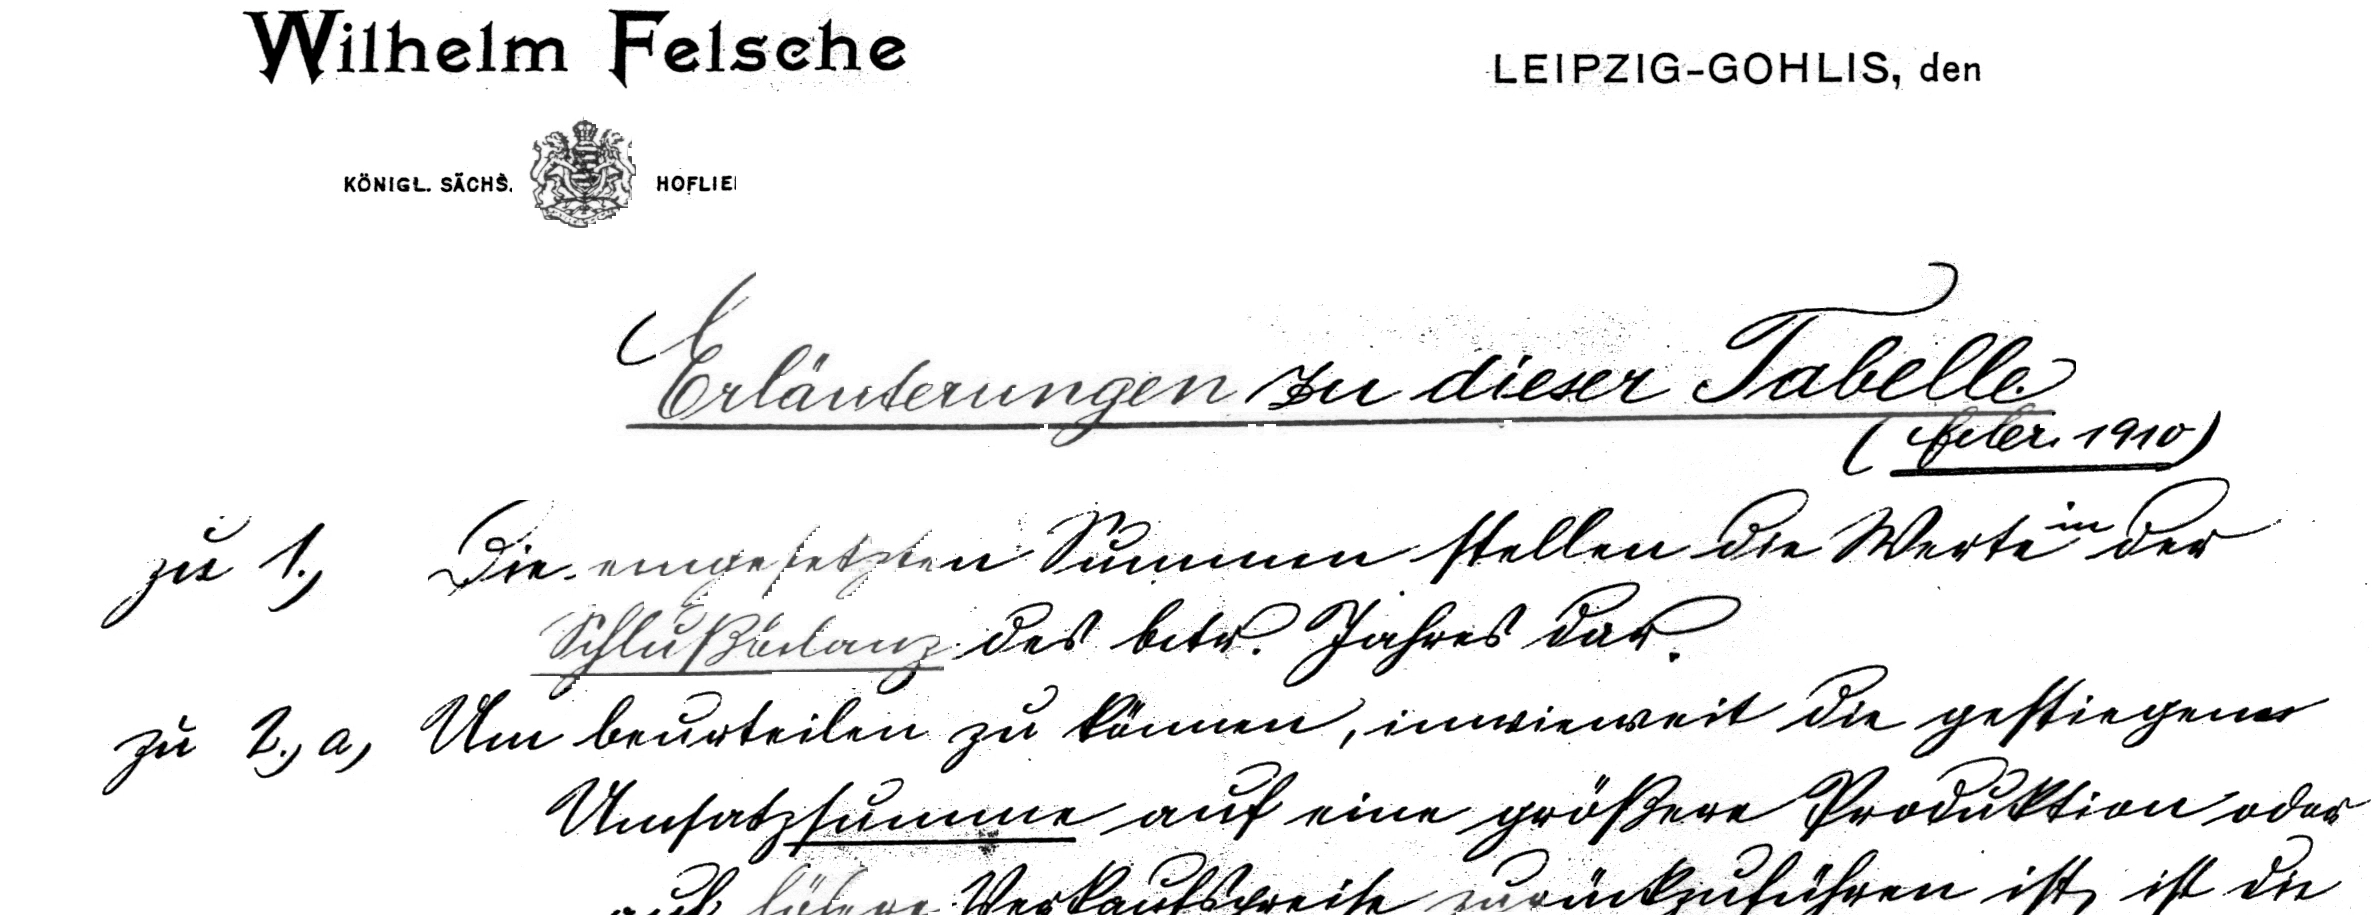 Wilhelm Felsche
LEIPZIG-GOHLIS, den
KÖNIGL. SÄCHS. HOFLIE
Erläuterungen zu dieser Tabelle
(Febr. 1910)
zu 1., Die eingesetzten Summen stellen die Werte in der
Schlußbilanz des betr. Jahres dar.
zu 2., a, Um beurteilen zu können, inwieweit die gestiegene
Umsatzsumme auf eine größere Produktion oder
auf höhere Verkaufspreise zurückzuführen ist, ist die